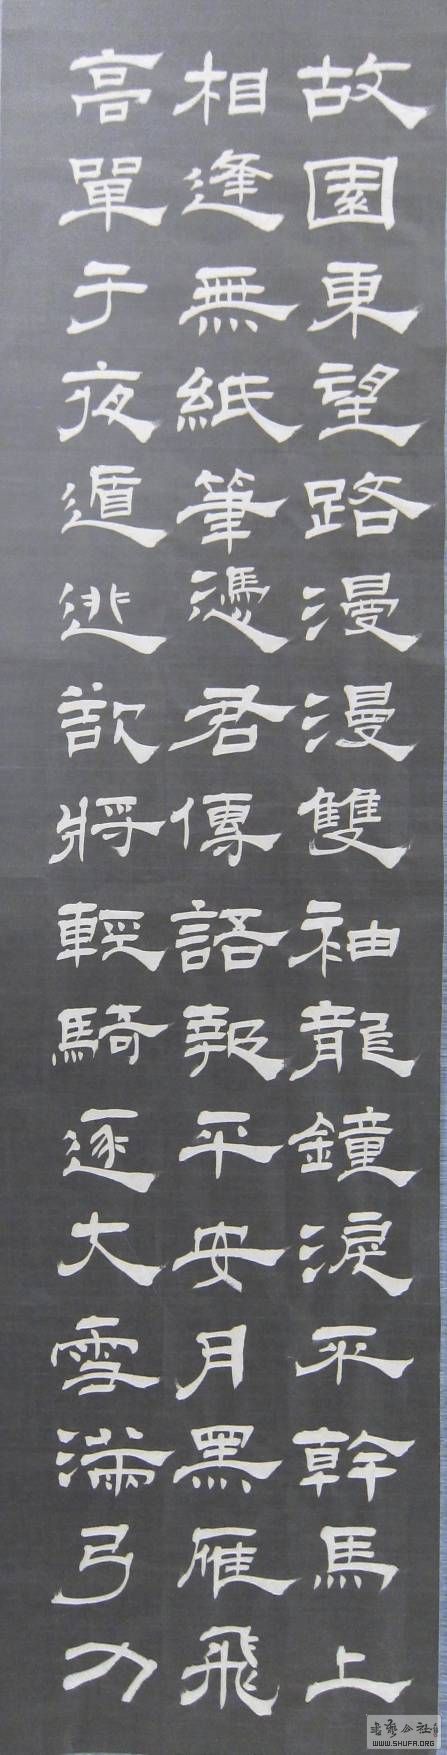 故園東望路漫漫雙袖龍鐘淚不幹馬上
相逢無紙筆憑君傳語報平安月黑雁飛
高單于夜遁逃欲將輕騎逐大雪滿弓刀
书艺公社
WWW.SHUFA.ORG